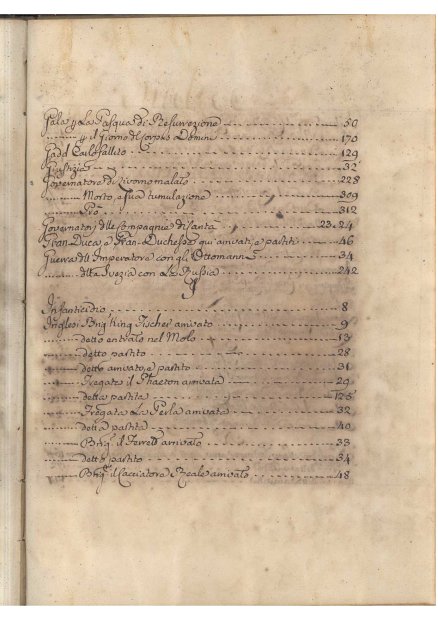 Gala p. La Pasqua di Resurrezione 50
p. il giorno del Corpus Domini 170
Gadd Carlo fallito 129
Giustizia 32
Governatore di Livorno malato 228
Morto, e sua tumulazione 309
312
Governatori delle Compagnie di Santa 23. 24
Gran Duca, e Gran-Duchessa qui arrivati, e partiti 46
Guerra dell Imperatore con gli Ottomanni 34
della Svezia con La Russia 242
I
Infanticidio 8
Inglesi Brig King Fischer arrivato 9
detto entrato nel Molo 13
detto partito 28
detto arrivato, e partito 31
Fregata il Phaeton arrivata 29
detta partita 125
Fregata La Perla arrivata 32
detta partita 40
Brig. il Ferrett arrivato 33
detto partito 34
Brig. il Cacciatore Reale arrivato 48